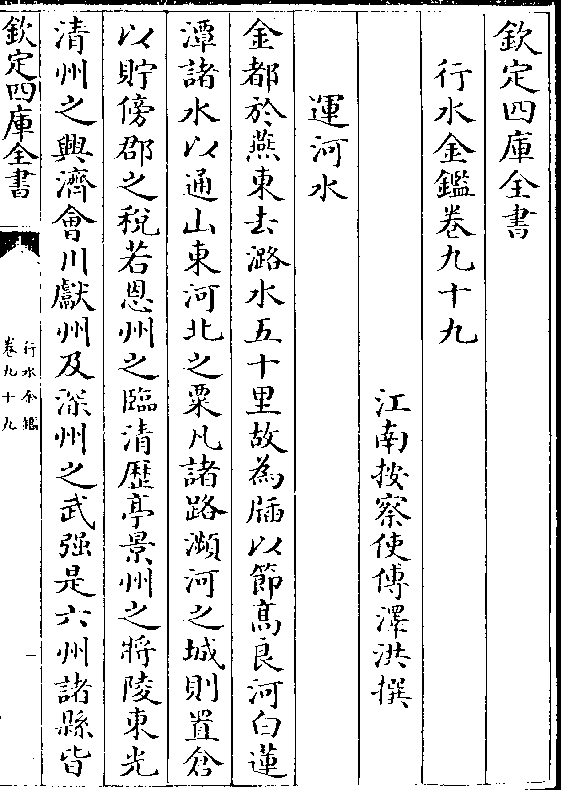 欽定四庫全書
行水金鑑卷九十九
江南按察使傅澤洪撰
運河水
金都於燕東去潞水五十里故為牐以節髙良河白蓮
潭諸水以通山東河北之粟凡諸路瀕河之城則置倉
以貯傍郡之稅若恩州之臨清歴亭景州之將陵東光
清州之興濟會川獻州及深州之武强是六州諸縣皆
欽定四庫全書
行水金鑑
卷九十九
一